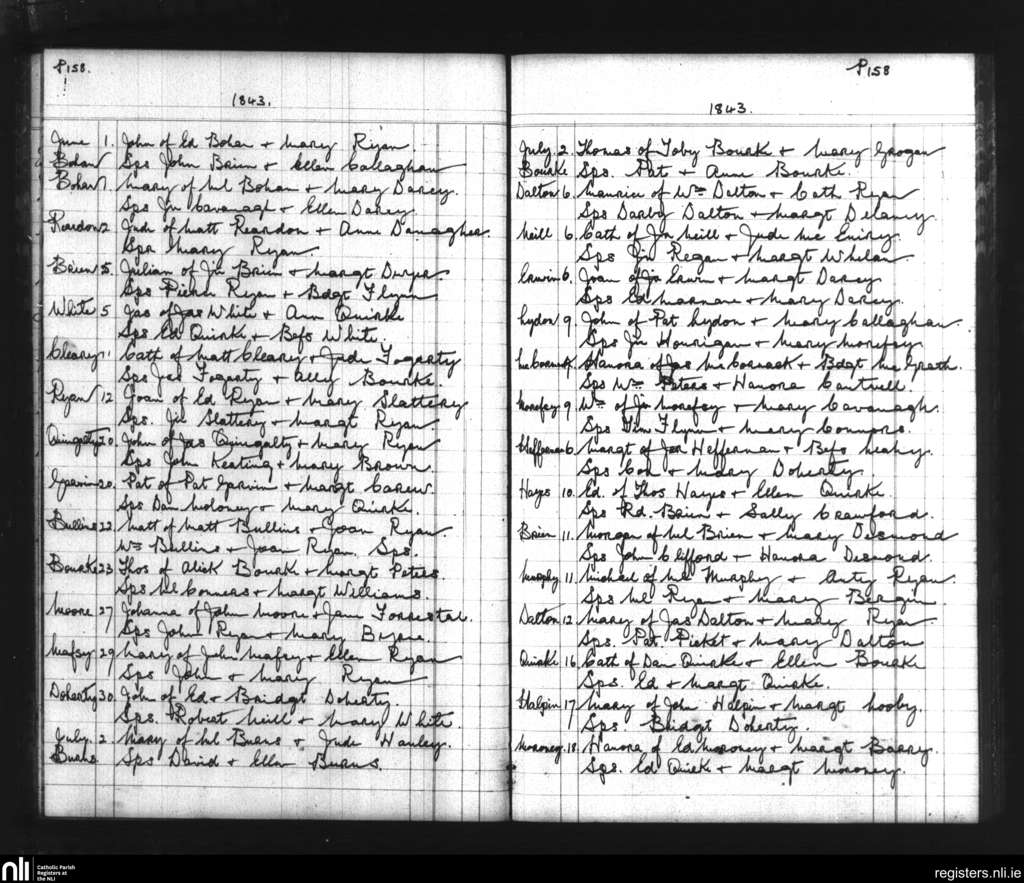 P158.
1843.
June 1. John of Ed Bohan + Mary Ryan
Bohan Sps John Brien + Ellen Callaghan
Bohan 1. Mary of Ml Bohan + Mary Darcy.
Sps Jn Cavanagh + Ellen Darcy
Reardon 2 Jude of Matt Reardon + Anne Danagher.
Spr Mary Ryan.
Brien 5. Julian of Jn Brien + Margt Dwyer
Sps Pierce Ryan + Bdgt Flynn
White 5 Jas of Jas White + Ann Quirke
Sps Ed Quirke + Bess White.
Cleary Cath of Matt Cleary + Jude Fogarty
Sps Jas Fogarty + Ally Bourke.
Ryan 12 Joan of Ed Ryan + Mary Slattery
Sps. Jn Slattery + Margt Ryan
20. John of Jas + Mary Ryan
Sps John Keating + Mary Brown.
20. Pat of Pat + Margt Carew.
Sps Dan Moloney + Mary Quirke.
Bullins 22. Matt of Matt Bullins + Joan Ryan.
Wm Bullins + Joan Ryan. Sps.
Bourke 23 Thos of Alick Bourk + Margt Peters
Sps Ml Conners + Margt Williams.
Moore 27 Johanna of John Moore + Jane Forrestal.
Sps John Ryan + Mary Byrne.
29 Mary of John + Ellen Ryan
Sps John + Mary Ryan
Doherty 30. John of Ed + Bridgt Doherty.
Sps. Robert Neill + Mary White.
July. 2. Mary of Ml Burns + Jude Hanley.
Burns Sps David + Ellen Burns.
P158
1843.
July. 2. Thomas of Toby Bourk + Mary Grogan
Bourke Sps. Pat + Anne Bourke.
Dalton 6. Maurice of Wm Dalton + Cath Ryan
Sps Darby Dalton + Margt Delaney.
Neill 6. Cath of Jn Neill + Jude Mc Eniry.
Sps Jn Regan + Margt Whelan
Erwin 6. Joan of Jn Erwin + Margt Darcy
Sps Ed Marnane + Mary Darcy.
Lydon 9. John of Pat Lydon + Mary Callaghan.
Sps Jn Hourigan + Mary Morrissy.
Hanora of Jas McCormack + Bdgt McGrath.
Sps Wm Peters + Hanora Cantwell.
9. Wm of Jn + Mary Cavanagh.
Sps Tim Flynn + Mary Connors.
Heffernan 6. Margt of Jas Heffernan + Bess Leahy.
Sps Con + Mary Doherty.
Hayes 10. Ed. of Thos Hayes + Ellen Quirke.
Sps Rd. Brien + Sally Crawford.
Brien 11. Morgan of Ml Brien + Mary Desmond
Sps John Clifford + Hanora Desmond.
Murphy 11. Michael of Ml Murphy + Anty Ryan.
Sps Ml Ryan + Mary Bergin.
Dalton 12. Mary of Jas Dalton + Mary Ryan
Sps. Pat. Picket + Mary Dalton
Quirke 16. Cath of Dan Quirke + Ellen Bourk
Sps. Ed + Margt Quirke.
Halpin 17. Mary of John Halpin + Margt Looby.
Sps. Bridgt Doherty.
Moroney 18. Hanora of Ed Moroney + Margt Barry.
Sps. Ed Quirk + Margt Moroney.
nli
Catholic Parish
Registers at
the NLI
registers.nli.ie